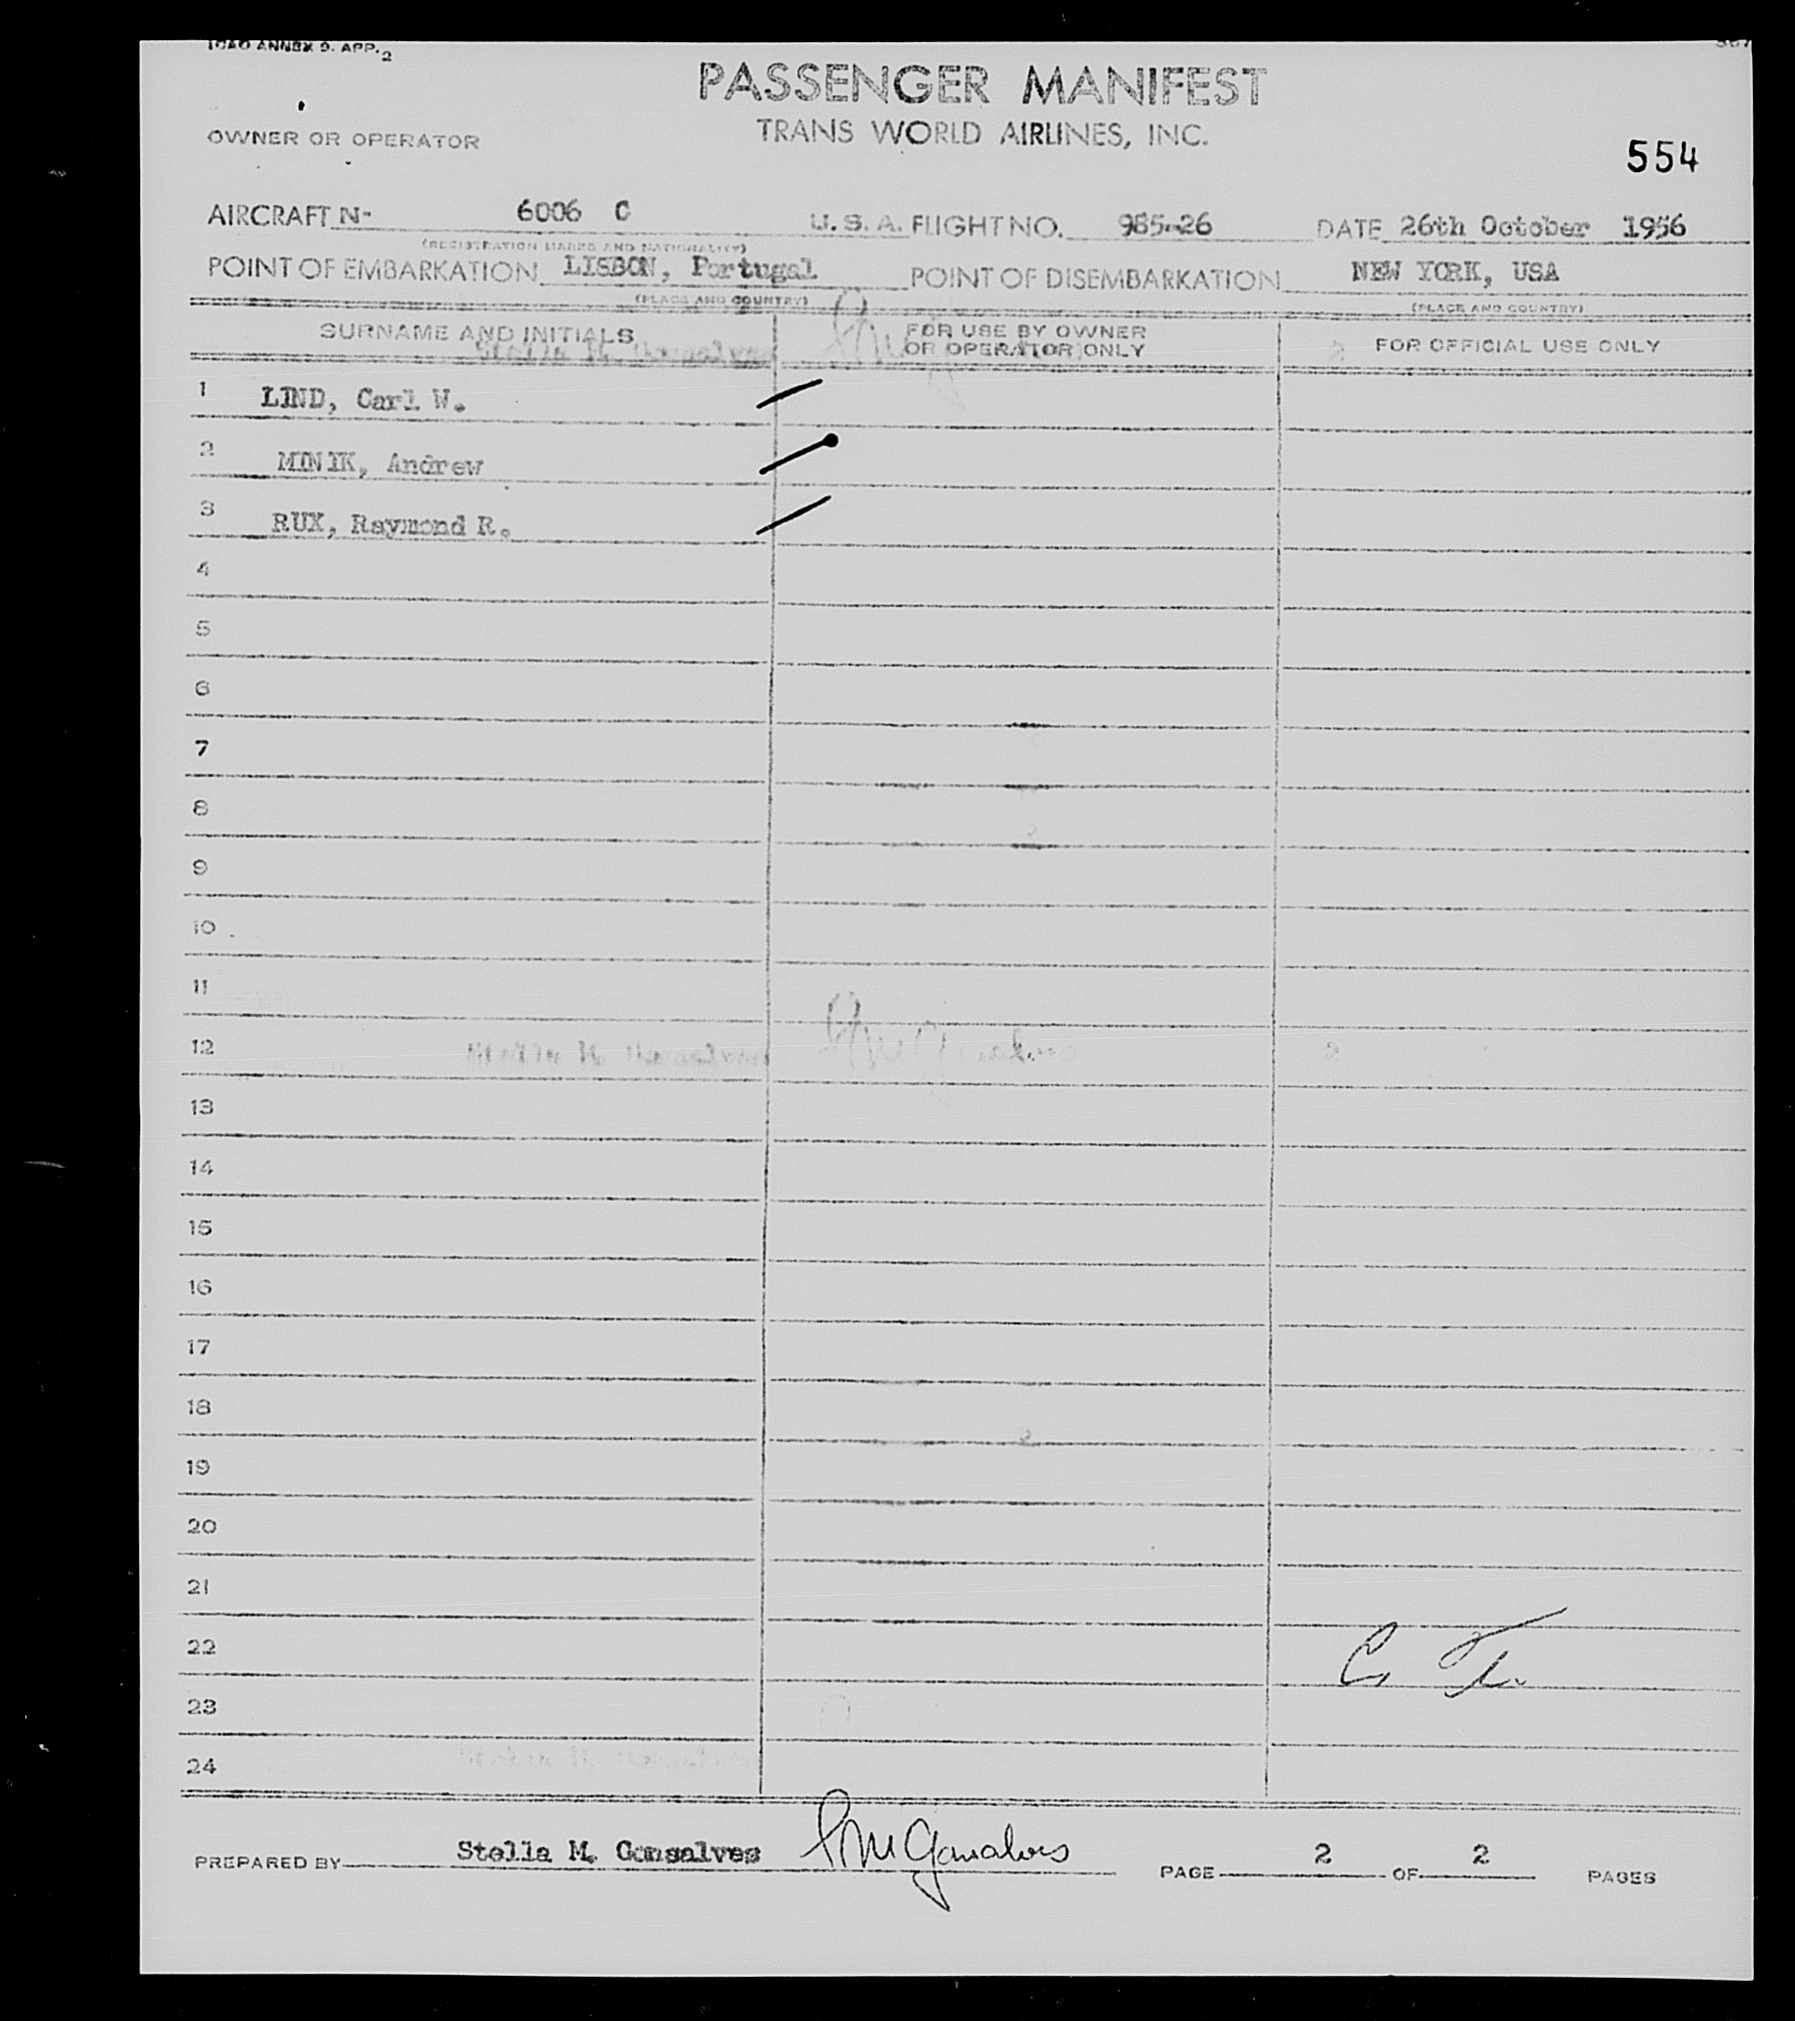 ICAO ANNEX 9. APP. 2
PASSENGER MANIFEST
OWNER OR OPERATOR TRANS WORLD AIRLINES, INC.
554
AIRCRAFT N- 6006 C U.S.A. FLIGHT NO. 985-26 DATE 26th October 1956
(REGISTRATION MARKS AND NATIONALITY)
POINT OF EMBARKATION LISBON, Portugal POINT OF DISEMBARKATION NEW YORK, USA
(PLACE AND COUNTRY) (PLACE AND COUNTRY)
SURNAME AND INITIALS FOR USE BY OWNER OR OPERATOR ONLY FOR OFFICIAL USE ONLY
1 LIND, Carl W.
2 MINIK, Andrew
3 RUX, Raymond R.
4
5
6
7
8
9
10
11
12
13
14
15
16
17
18
19
20
21
22
23
24
PREPARED BY Stella M. Gonsalves SM Gonsalves PAGE 2 OF 2 PAGES